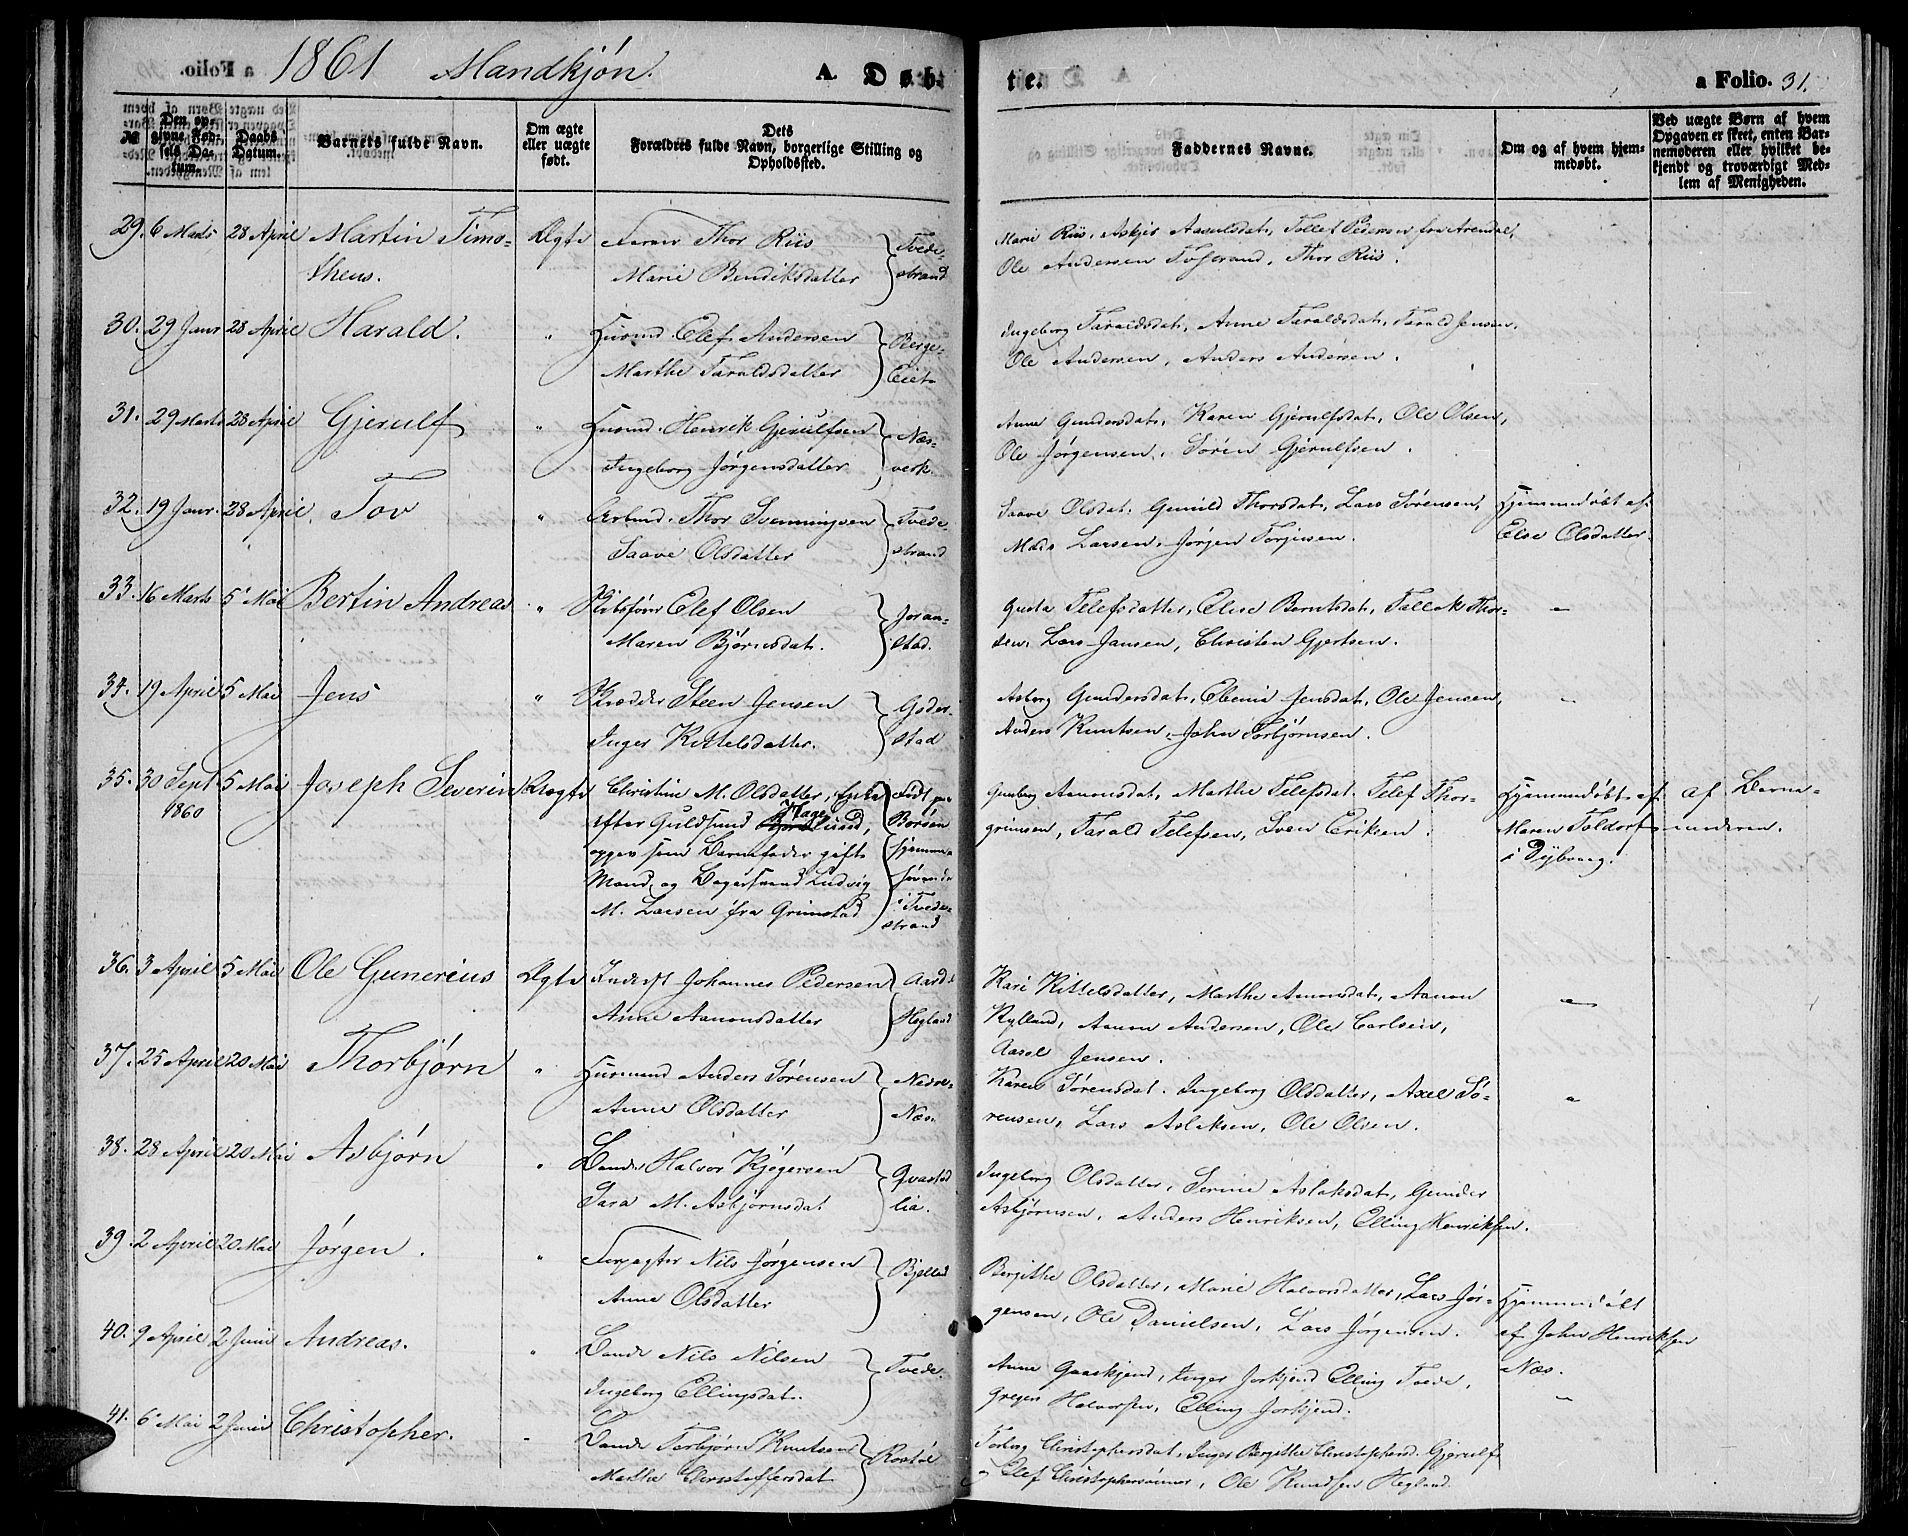 1861 Mandkjøn. A. Døb-
te. a Folio. 31.
№ Den opgivne Fødsels Datum. Daabs Datum. Barnets fulde Navn. Om ægte eller uægte født. Dets Forældres fulde Navn, borgerlige Stilling og Opholdssted. Faddernes Navne. Om og af hvem hjemmedøbt. Ved uægte Børn af hvem Opgaven er skeet, enten Barnemoderen eller hvilket bekjendt og troværdigt Medlem af Menigheden.
29. 6 Marts 28 April Martin Timo- Ægte Thor Riis Tvede- Marie Riis, Askjer Aanulsdat, Tollef Pedersen fra Arendal,
theus. Marie Bendiksdatter strand Ole Andersen Thor Riis.
30. 29 Janr 28 April Harald. " Husmd. Elef Andersen Berge- Ingeborg Taraldsdat, Anne Taraldsdat, Tarald Jensen,
Marthe Taraldsdatter Eiet Ole Andersen, Anders Andersen.
31. 29 Marts 28 April Gjerulf " Husmd. Henrik Gjerulfsen Næs- Anne Gundersdat, Karen Gjerulfsdat, Ole Olsen,
Ingeborg Jørgensdatter verk. Ole Jørgensen, Søren Gjerulfsen.
32. 19 Janr. 28 April Tov " Arbmd. Thor Svenningsen Tvede- Saave Olsdat. Gunild Thorsdat, Lars Sørensen, Hjemmedøbt af
Saave Olsdatter strand Mads Larsen, Jørgen Torjusen. Else Olsdatter.
33. 16 Marts 5 Mai Bertin Andreas " Skibsfører Elef Olsen Joran- Gusta Telefsdatter, Elise Berntsdat, Tallak Thor-
Maren Bjørnsdat. stad. sen, Lars Jansen, Christen Gjertsen.
34. 19 April 5 Mai Jens " Skrædder Steen Jensen Goder- Asborg Gundersdat, Ebenie Jensdat, Ole Jensen,
Inger Kittelsdatter. stad Anders Knutsen, John Torbjørnsen.
35. 30 Sept 5 Mai Joseph Severin Uægte Christine M. Olsdatter, Enke Født paa Gunborg Aanonsdat, Marthe Telefsdat. Telef Thor- Hjemmedøbt af af Barne-
1860 efter Guldsmd Hage Borøen grimsen, Tarald Telefsen, Sven Eriksen. Maren Toldorf moderen.
opgev som Barnefader gift hjemme- i Dybvaag.
Mand, og Bogerstrand Ludvig hørende
M. Larsen fra Grimstad i Tvede-
strand
36. 3 April 5 Mai Ole Gunerius Ægte Inderst Johannes Pedersen Kari Kittelsdatter, Marthe Aanonsdat, Aanon
Anne Aanonsdatter Hegland Rylland, Aanon Andersen, Ole Carlsen,
Aasol Jensen.
37. 25 April 20 Mai Thorbjørn " Husmand Anders Sørensen Nedre- Karen Sørensdat. Ingeborg Olsdatter, Axel Sø-
Anne Olsdatter Næs. rensen, Lars Aslaksen, Ole Olsen.
38. 28 April 20 Mai Asbjørn " Bonde Halvor Kjøgersen Qvastad Ingeborg Olsdatter, Serine Aslaksdat, Gunder
Sara M. Asbjørnsdat lia. Asbjørnsen, Anders Henriksen, Elling Henriksen.
39. 2 April 20 Mai Jørgen. " Forpagter Nils Jørgensen Bjelland Bergithe Olsdatter, Marie Halvorsdatter, Lars Jør- Hjemmedøbt
Anne Olsdatter gensen, Ole Danielsen, Lars Jørgensen. af John Henriksen
Næs.
40. 9 April 2 Juni Andreas. " Bonde Nils Nilsen Tvede. Anne Gaaskjend, Inger Jorkjend Elling Tvede,
Ingeborg Ellingsdat. Greger Halvorsen, Elling Jorkjend.
41. 6 Mai 2 Juni Christopher. " Bonde Torbjørn Knutsen Rostøl Torborg Christophersdat, Inger Bergithe Christophersd. Gjerulf
Marthe Christoffersdat Elef Christophersønner, Ole Knudsen Hegland.